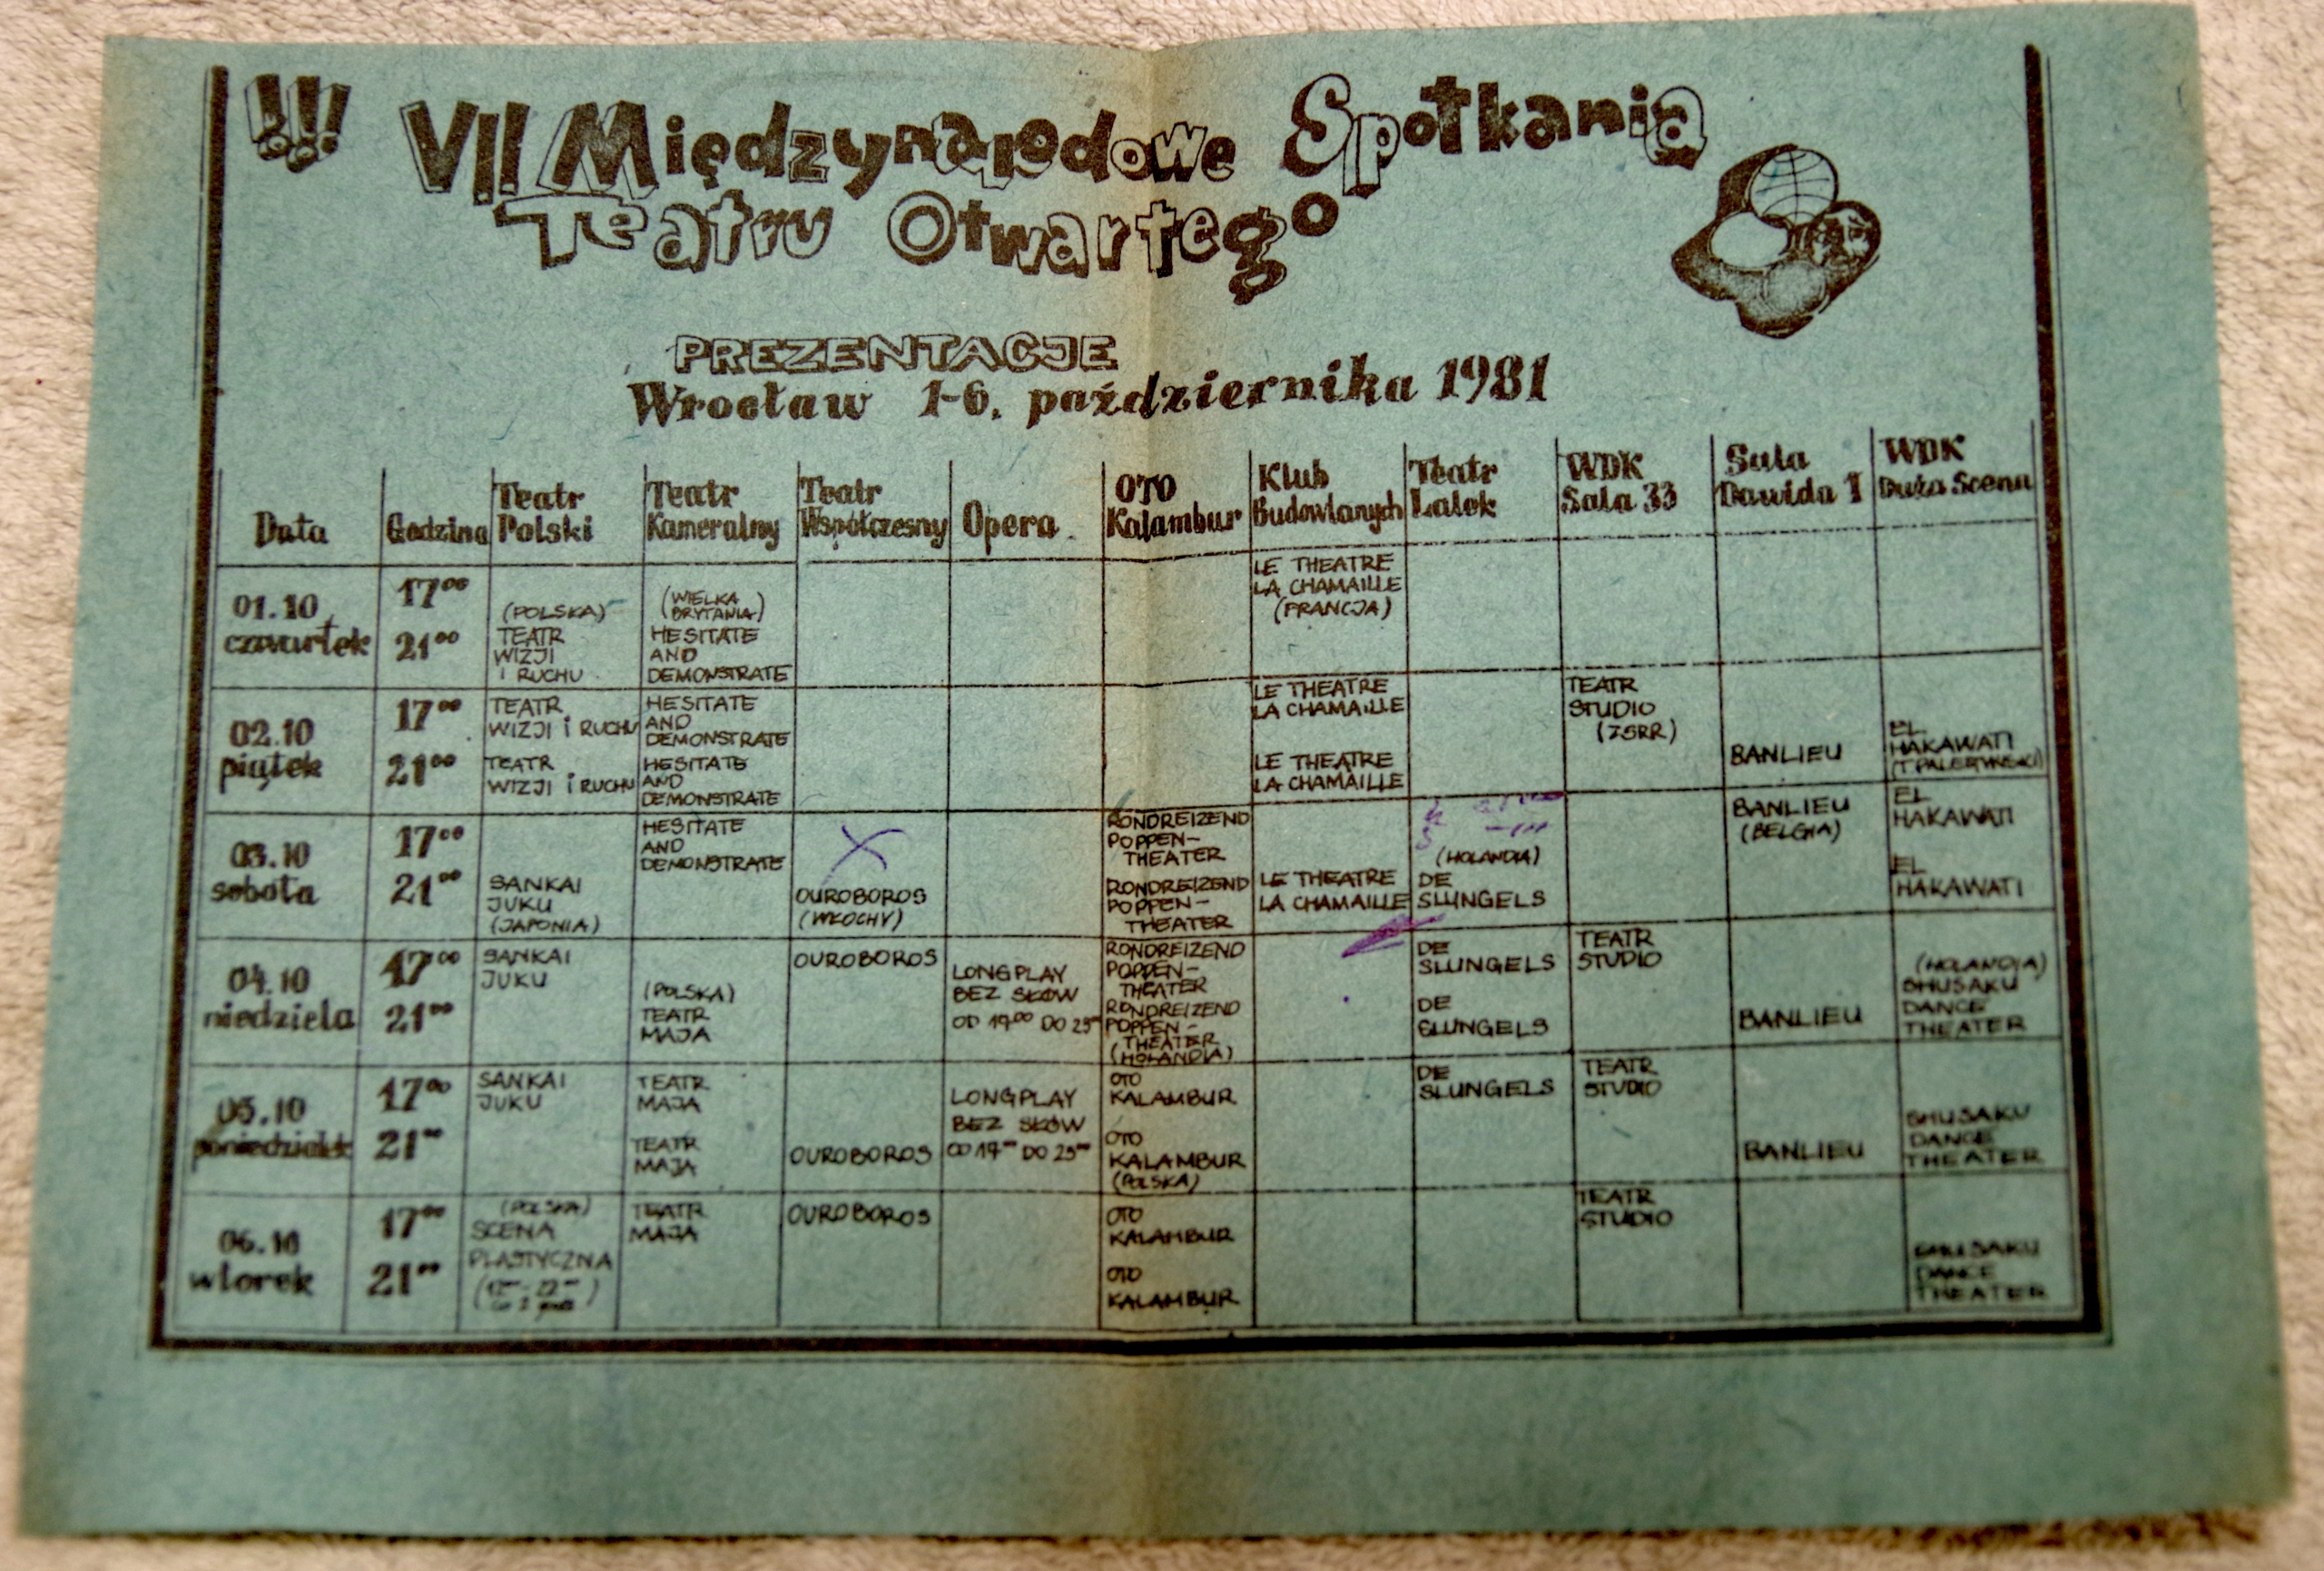 !!!
VII Międzynarodowe Spotkania
Teatru Otwartego
PREZENTACJE
Wrocław 1-6. października 1981
Data
Godzina
Teatr
Polski
Teatr
Kameralny
Teatr
Współczesny
Opera
OTO
Kalambur
Klub
Budowlanych
Teatr
Lalek
WDK
Sala 33
Sala
Dawida 1
WDK
Duża Scena
01.10
czwartek
17⁰⁰
21⁰⁰
(POLSKA)
TEATR
WIZJI
I RUCHU
(WIELKA
BRYTANIA)
HESITATE
AND
DEMONSTRATE
LE THEATRE
LA CHAMAILLE
(FRANCJA)
02.10
piątek
17⁰⁰
21⁰⁰
TEATR
WIZJI i RUCHU
TEATR
WIZJI i RUCHU
HESITATE
AND
DEMONSTRATE
HESITATE
AND
DEMONSTRATE
LE THEATRE
LA CHAMAILLE
LE THEATRE
LA CHAMAILLE
TEATR
STUDIO
(ZSRR)
BANLIEU
EL
HAKAWATI
03.10
sobota
17⁰⁰
21⁰⁰
SANKAI
JUKU
(JAPONIA)
HESITATE
AND
DEMONSTRATE
OUROBOROS
(WŁOCHY)
RONDREIZEND
POPPEN-
THEATER
RONDREIZEND
POPPEN-
THEATER
LE THEATRE
LA CHAMAILLE
(HOLANDIA)
DE
SLUNGELS
BANLIEU
(BELGIA)
EL
HAKAWATI
EL
HAKAWATI
04.10
niedziela
17⁰⁰
21⁰⁰
SANKAI
JUKU
(POLSKA)
TEATR
MAJA
OUROBOROS
LONGPLAY
BEZ SŁÓW
OD 19⁰⁰ DO 23⁰⁰
RONDREIZEND
POPPEN-
THEATER
RONDREIZEND
POPPEN-
THEATER
(HOLANDIA)
DE
SLUNGELS
DE
SLUNGELS
TEATR
STUDIO
BANLIEU
(HOLANDIA)
SHUSAKU
DANCE
THEATER
05.10
poniedziałek
17⁰⁰
21⁰⁰
SANKAI
JUKU
TEATR
MAJA
TEATR
MAJA
OUROBOROS
LONGPLAY
BEZ SŁÓW
OD 19⁰⁰ DO 23⁰⁰
OTO
KALAMBUR
OTO
KALAMBUR
(POLSKA)
DE
SLUNGELS
TEATR
STUDIO
BANLIEU
SHUSAKU
DANCE
THEATER
06.10
wtorek
17⁰⁰
21⁰⁰
(POLSKA)
SCENA
PLASTYCZNA
TEATR
MAJA
OUROBOROS
OTO
KALAMBUR
OTO
KALAMBUR
TEATR
STUDIO
SHUSAKU
DANCE
THEATER